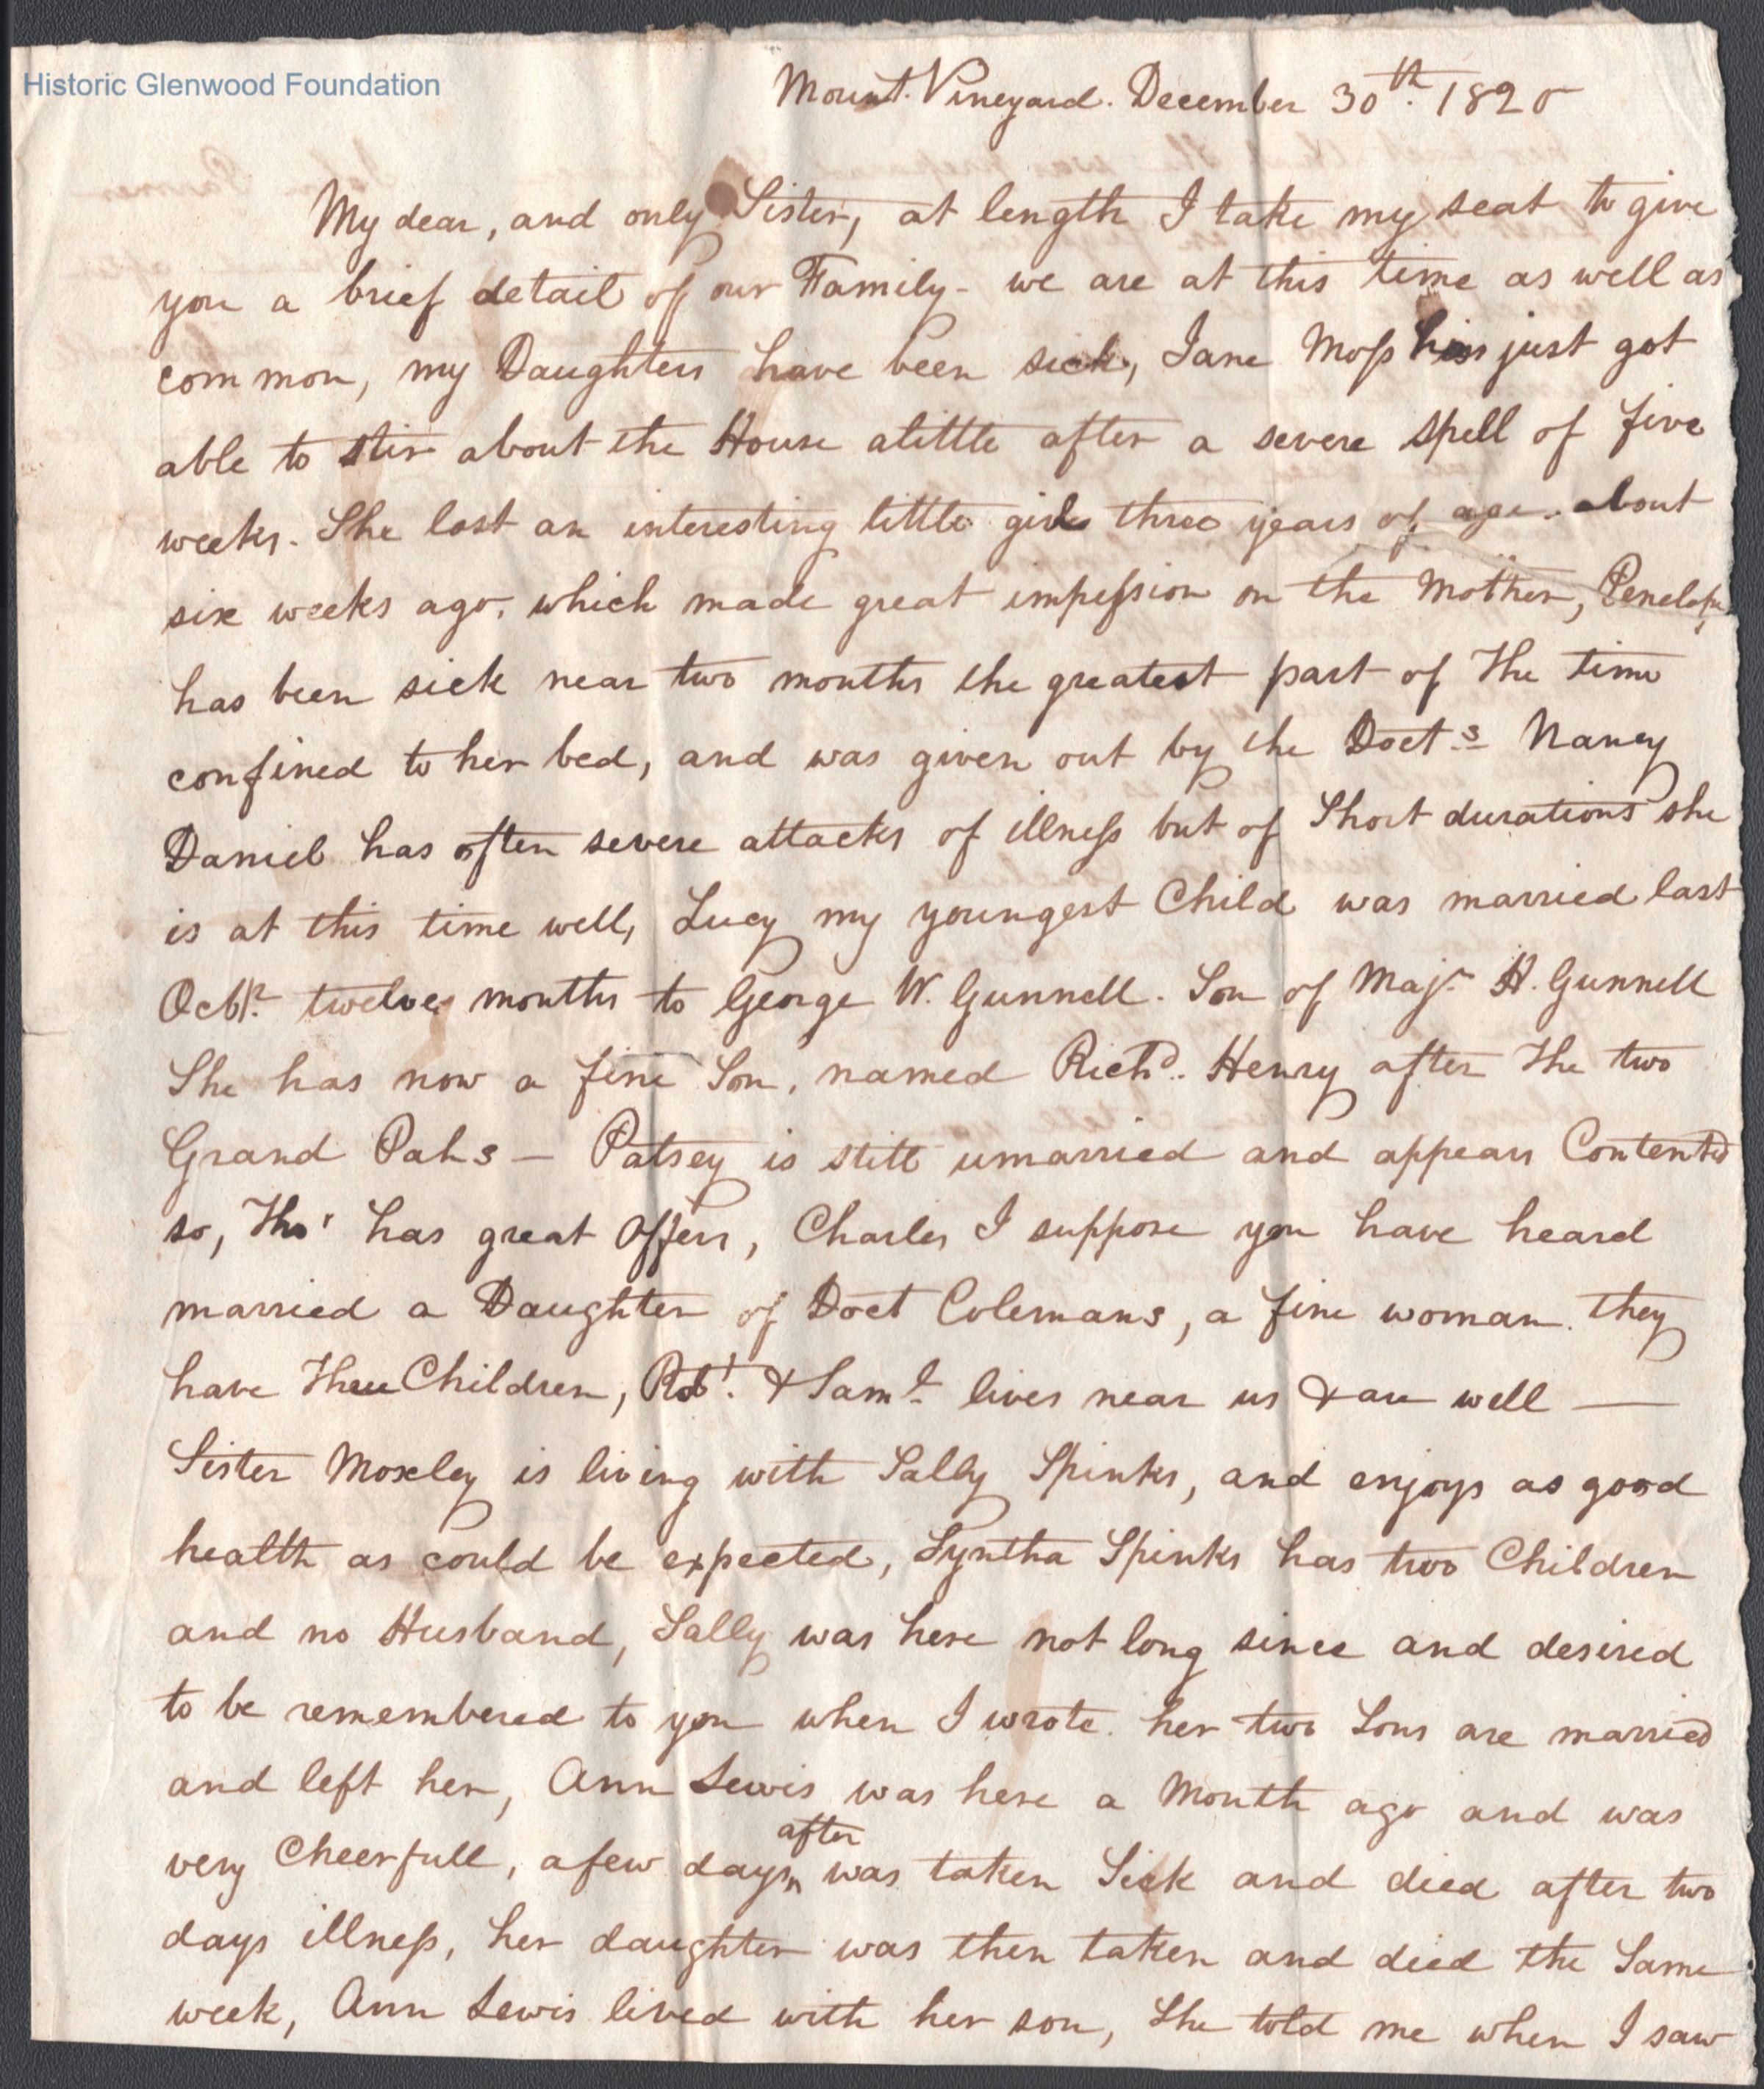 Historic Glenwood Foundation
Mount Vineyard. December 30th. 1820
My dear, and only Sister, at length I take my seat to give
you a brief detail of our Family - we are at this time as well as
common, my Daughters have been sick, Jane Moss has just got
able to stir about the House alittle after a severe spell of five
weeks. She lost an interesting little girl three years of age. about
six weeks ago, which made great impession on the Mother, Penelope
has been sick near two months the greatest part of The time
confined to her bed, and was given out by the Docts Nancy
Daniel has often severe attacks of illness but of Short durations she
is at this time well, Lucy my youngest Child was married last
Octbr. twelve months to George W. Gunnell. Son of Majr H. Gunnell
She has now a fine Son, named Richd. Henry after The two
Grand Pahs — Patsey is still unmarried and appears Contented
so, Tho' has great Offers, Charles I suppose you have heard
married a Daughter of Doct Colemans, a fine woman. they
have Three Children, Robt. & Saml. lives near us & are well —
Sister Moxley is living with Sally Spinks, and enjoys as good
health as could be expected, Syntha Spinks has two Children
and no Husband, Sally was here not long since and desired
to be remembered to you when I wrote. her two Sons are married
and left her, Ann Lewis was here a Month ago and was
very Cheerfull, afew days after was taken Sick and died after two
days illness, her daughter was then taken and died the Same
week, Ann Lewis lived with her son, She told me when I saw